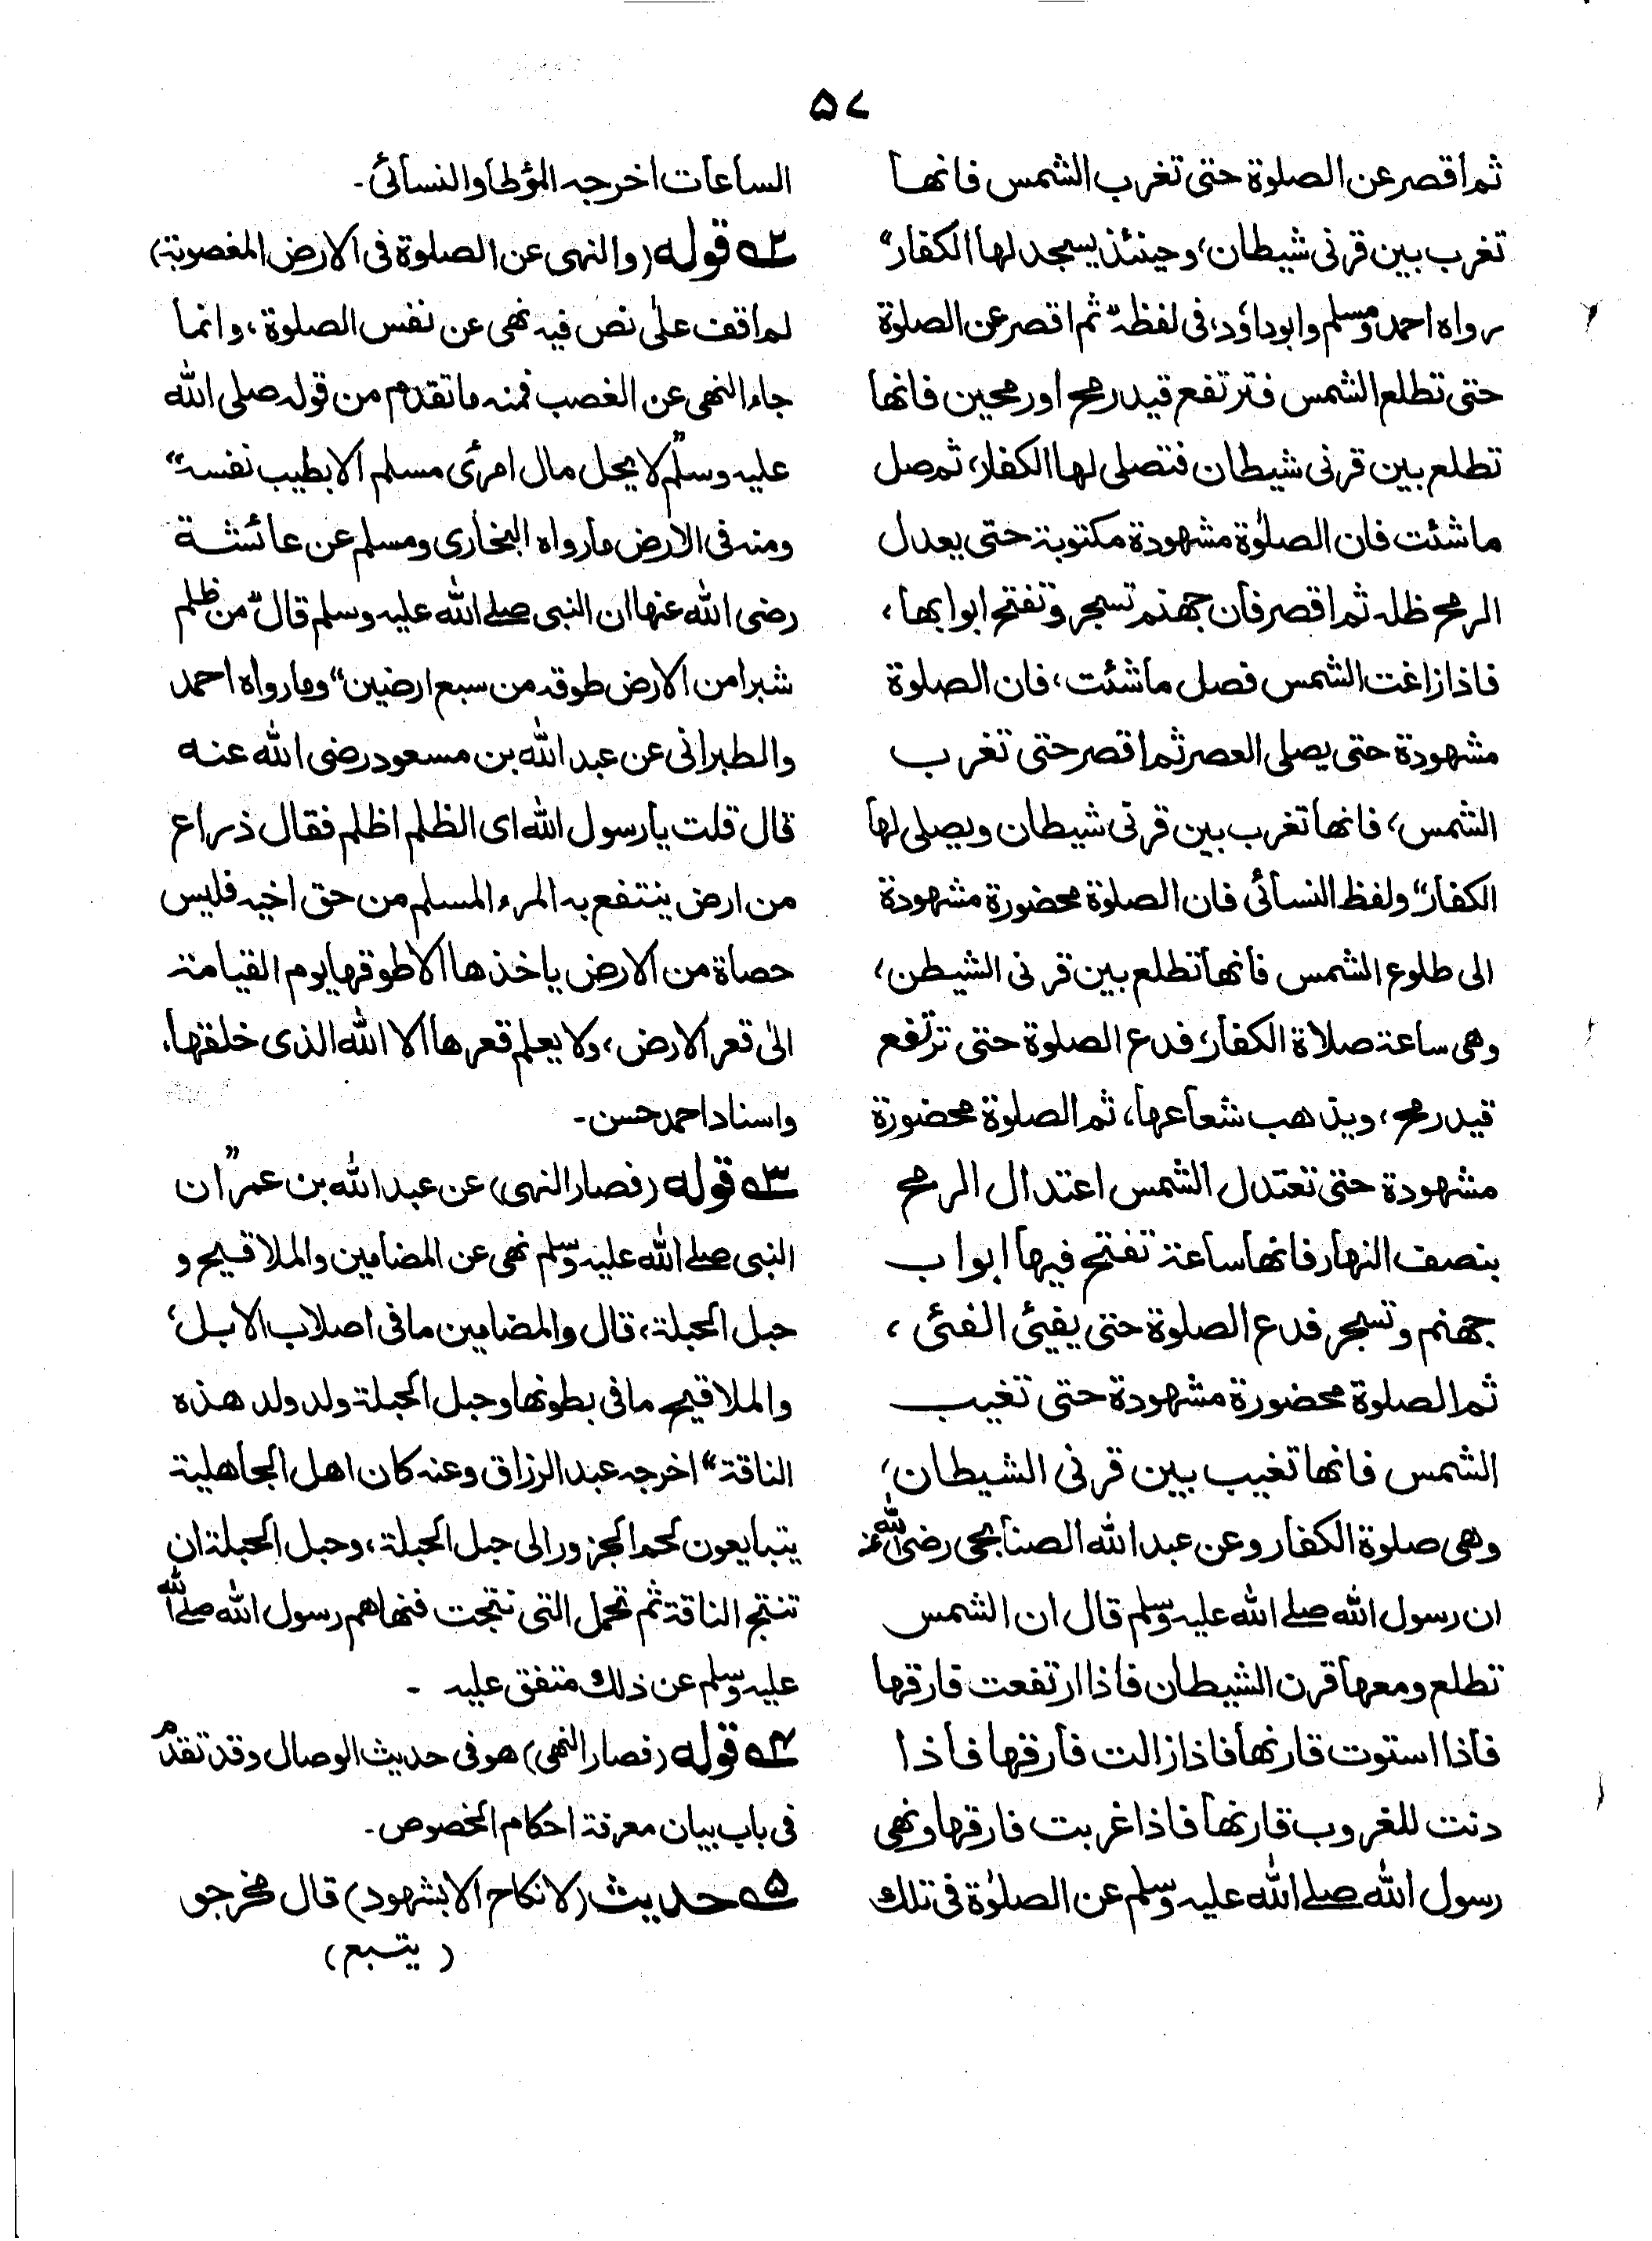 ۵۷
ثم اقصر عن الصلوة حتی تغرب الشمس فانھا
تغرب بین قرنی شیطان، وحینئذ یسجد لھا الکفار“
رواہ احمد ومسلم وابوداؤد، فی لفظہ ”ثم اقصر عن الصلوة
حتی تطلع الشمس فترتفع قید رمح اورمحین فانھا
تطلع بین قرنی شیطان فتصلی لھا الکفار، ثم صل
ما شئت فان الصلوٰة مشھودة مکتوبة حتی یعدل
الرمح ظلہ ثم اقصر فان جھنم تسجر وتفتح ابوابھا،
فاذا زاغت الشمس فصل ما شئت، فان الصلوة
مشھودة حتی یصلی العصر ثم اقصر حتی تغرب
الشمس، فانھا تغرب بین قرنی شیطان ویصلی لھا
الکفار“ ولفظ النسائی فان الصلوة محضورة مشھودة
الی طلوع الشمس فانھا تطلع بین قرنی الشیطن،
وھی ساعة صلاة الکفار، فدع الصلوة حتی ترتفع
قید رمح، ویذھب شعاعھا، ثم الصلوة محضورة
مشھودة حتی تعتدل الشمس اعتدال الرمح
بنصف النھار فانھا ساعة تفتح فیھا ابواب
جھنم وتسجر فدع الصلوة حتی یفیئ الفئ،
ثم الصلوة محضورة مشھودة حتی تغیب
الشمس فانھا تغیب بین قرنی الشیطان،
وھی صلوة الکفار وعن عبد اللہ الصنابحی رضی اللہ عنہ
ان رسول اللہ صلے اللہ علیہ وسلم قال ان الشمس
تطلع ومعھا قرن الشیطان فاذا ارتفعت فارقھا
فاذا استوت قارنھا فاذا زالت فارقھا فاذا
دنت للغروب قارنھا فاذا غربت فارقھا ونھی
رسول اللہ صلے اللہ علیہ وسلم عن الصلوٰة فی تلك
الساعات اخرجہ المؤطا والنسائی۔
۲ہ قولہ (والنھی عن الصلوة فی الارض المغصوبة)
لم اقف علیٰ نص فیہ نھی عن نفس الصلوة، وانما
جاء النھی عن الغصب فمنہ ما تقدم من قولہ صلی اللہ
علیہ وسلم ”لا یحل مال امرئ مسلم الا بطیب نفسہ“
ومنہ فی الارض ما رواہ البخاری ومسلم عن عائشة
رضی اللہ عنھا ان النبی صلے اللہ علیہ وسلم قال ”من ظلم
شبرا من الارض طوقہ من سبع ارضین“ وما رواہ احمد
والطبرانی عن عبد اللہ بن مسعود رضی اللہ عنہ
قال قلت یا رسول اللہ ای الظلم اظلم فقال ذراع
من ارض ینتفع بہ المرء المسلم من حق اخیہ فلیس
حصاة من الارض یاخذھا الا طوقھا یوم القیامة
الیٰ قعر الارض، ولا یعلم قعرھا الا اللہ الذی خلقھا،
واسناد احمد حسن۔
۳ہ قولہ (فصار النھی) عن عبد اللہ بن عمر ”ان
النبی صلے اللہ علیہ وسلم نھی عن المضامین والملاقیح و
حبل الحبلة، قال والمضامین ما فی اصلاب الابل،
والملاقیح ما فی بطونھا وحبل الحبلة ولد ولد ھذہ
الناقة“ اخرجہ عبد الرزاق وعنہ کان اھل الجاھلیة
یتبایعون لحم الجزور الی حبل الحبلة، وحبل الحبلة ان
تنتج الناقة ثم تحمل التی نتجت فنھاھم رسول اللہ صلے اللہ
علیہ وسلم عن ذلك متفق علیہ ۔
۴ہ قولہ (فصار النھی) ھو فی حدیث الوصال وقد تقدم
فی باب بیان معرفة احکام الخصوص۔
۵ہ حدیث (لا نکاح الا بشھود) قال مخرجو
(یتبع)